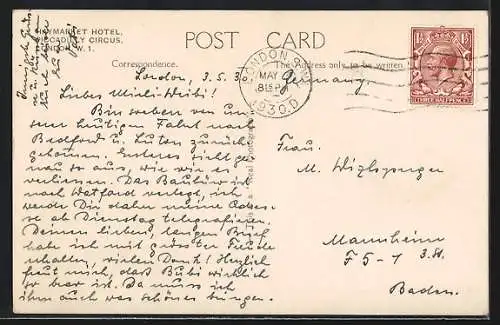 HAYMARKET HOTEL,
PICCADILLY CIRCUS,
LONDON, W. 1.
POST CARD
Correspondence.
The Address only to be written
LONDON
MAY
8 15 P
1930
1½ 1½
THREE HALFPENCE
London, 3.5.30
Germany
Liebes
Bin soeben von un-
serer heutigen Fahrt nach
Bedford u. Luton zurück
gekommen. Ersteres sieht ge
nau so aus, wie wir es
verliessen. Das Baubüro ist
nach Watford verlegt, ich
werde Dir daher meine Adres-
se ab Dienstag telegrafieren.
Deinen lieben, langen Brief
habe ich mit grösster Freude
erhalten, vielen Dank! Herzlich
freut mich, daß Bubi wirklich
so brav ist. Da muss ich
ihm auch was schönes bringen.
Frau.
M.
Mannheim
F 5-1 3. St.
Baden.